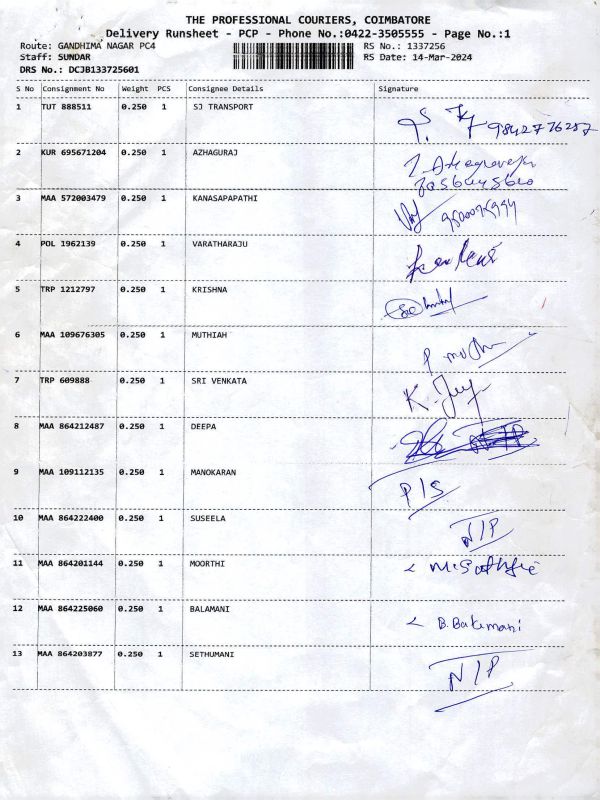 THE PROFESSIONAL COURIERS, COIMBATORE
Delivery Runsheet - PCP - Phone No.:0422-3505555 - Page No.:1
Route: GANDHIMA NAGAR PC4 RS No.: 1337256
Staff: SUNDAR RS Date: 14-Mar-2024
DRS No.: DCJB133725601
S No Consignment No Weight PCS Consignee Details Signature
1 TUT 888511 0.250 1 SJ TRANSPORT 9842776287
2 KUR 695671204 0.250 1 AZHAGURAJ
3 MAA 572003479 0.250 1 KANASAPAPATHI
4 POL 1962139 0.250 1 VARATHARAJU
5 TRP 1212797 0.250 1 KRISHNA
6 MAA 109676305 0.250 1 MUTHIAH
7 TRP 609888 0.250 1 SRI VENKATA
8 MAA 864212487 0.250 1 DEEPA
9 MAA 109112135 0.250 1 MANOKARAN P/S
10 MAA 864222400 0.250 1 SUSEELA N/P
11 MAA 864201144 0.250 1 MOORTHI
12 MAA 864225060 0.250 1 BALAMANI
13 MAA 864203877 0.250 1 SETHUMANI N/P